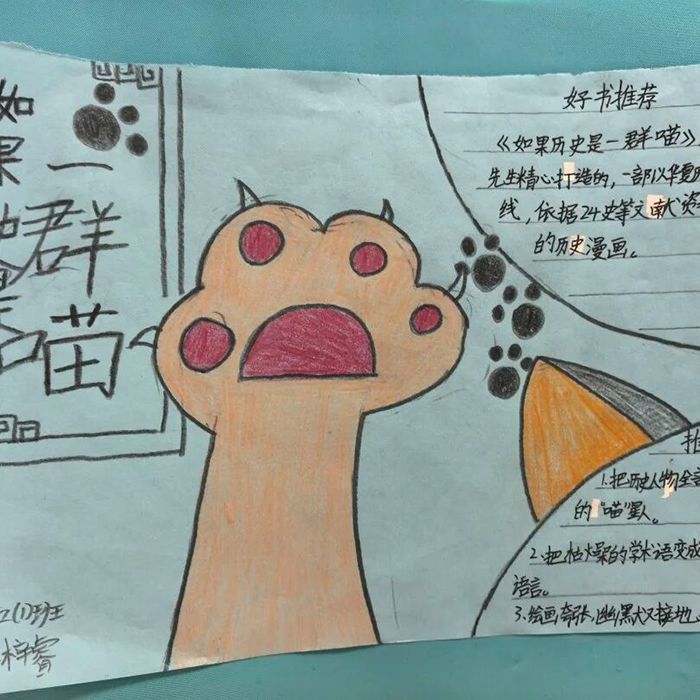 如
果一
群
喵
好书推荐
《如果历史是一群喵》
先生精心打造的，一部以华夏历
线，依据24史等文献资
的历史漫画。
推
1.把历史人物全部
的“喵”星人。
2.把枯燥的学术语变成
语言。
3.绘画夸张,幽默又接地
2(1)班
梓睿